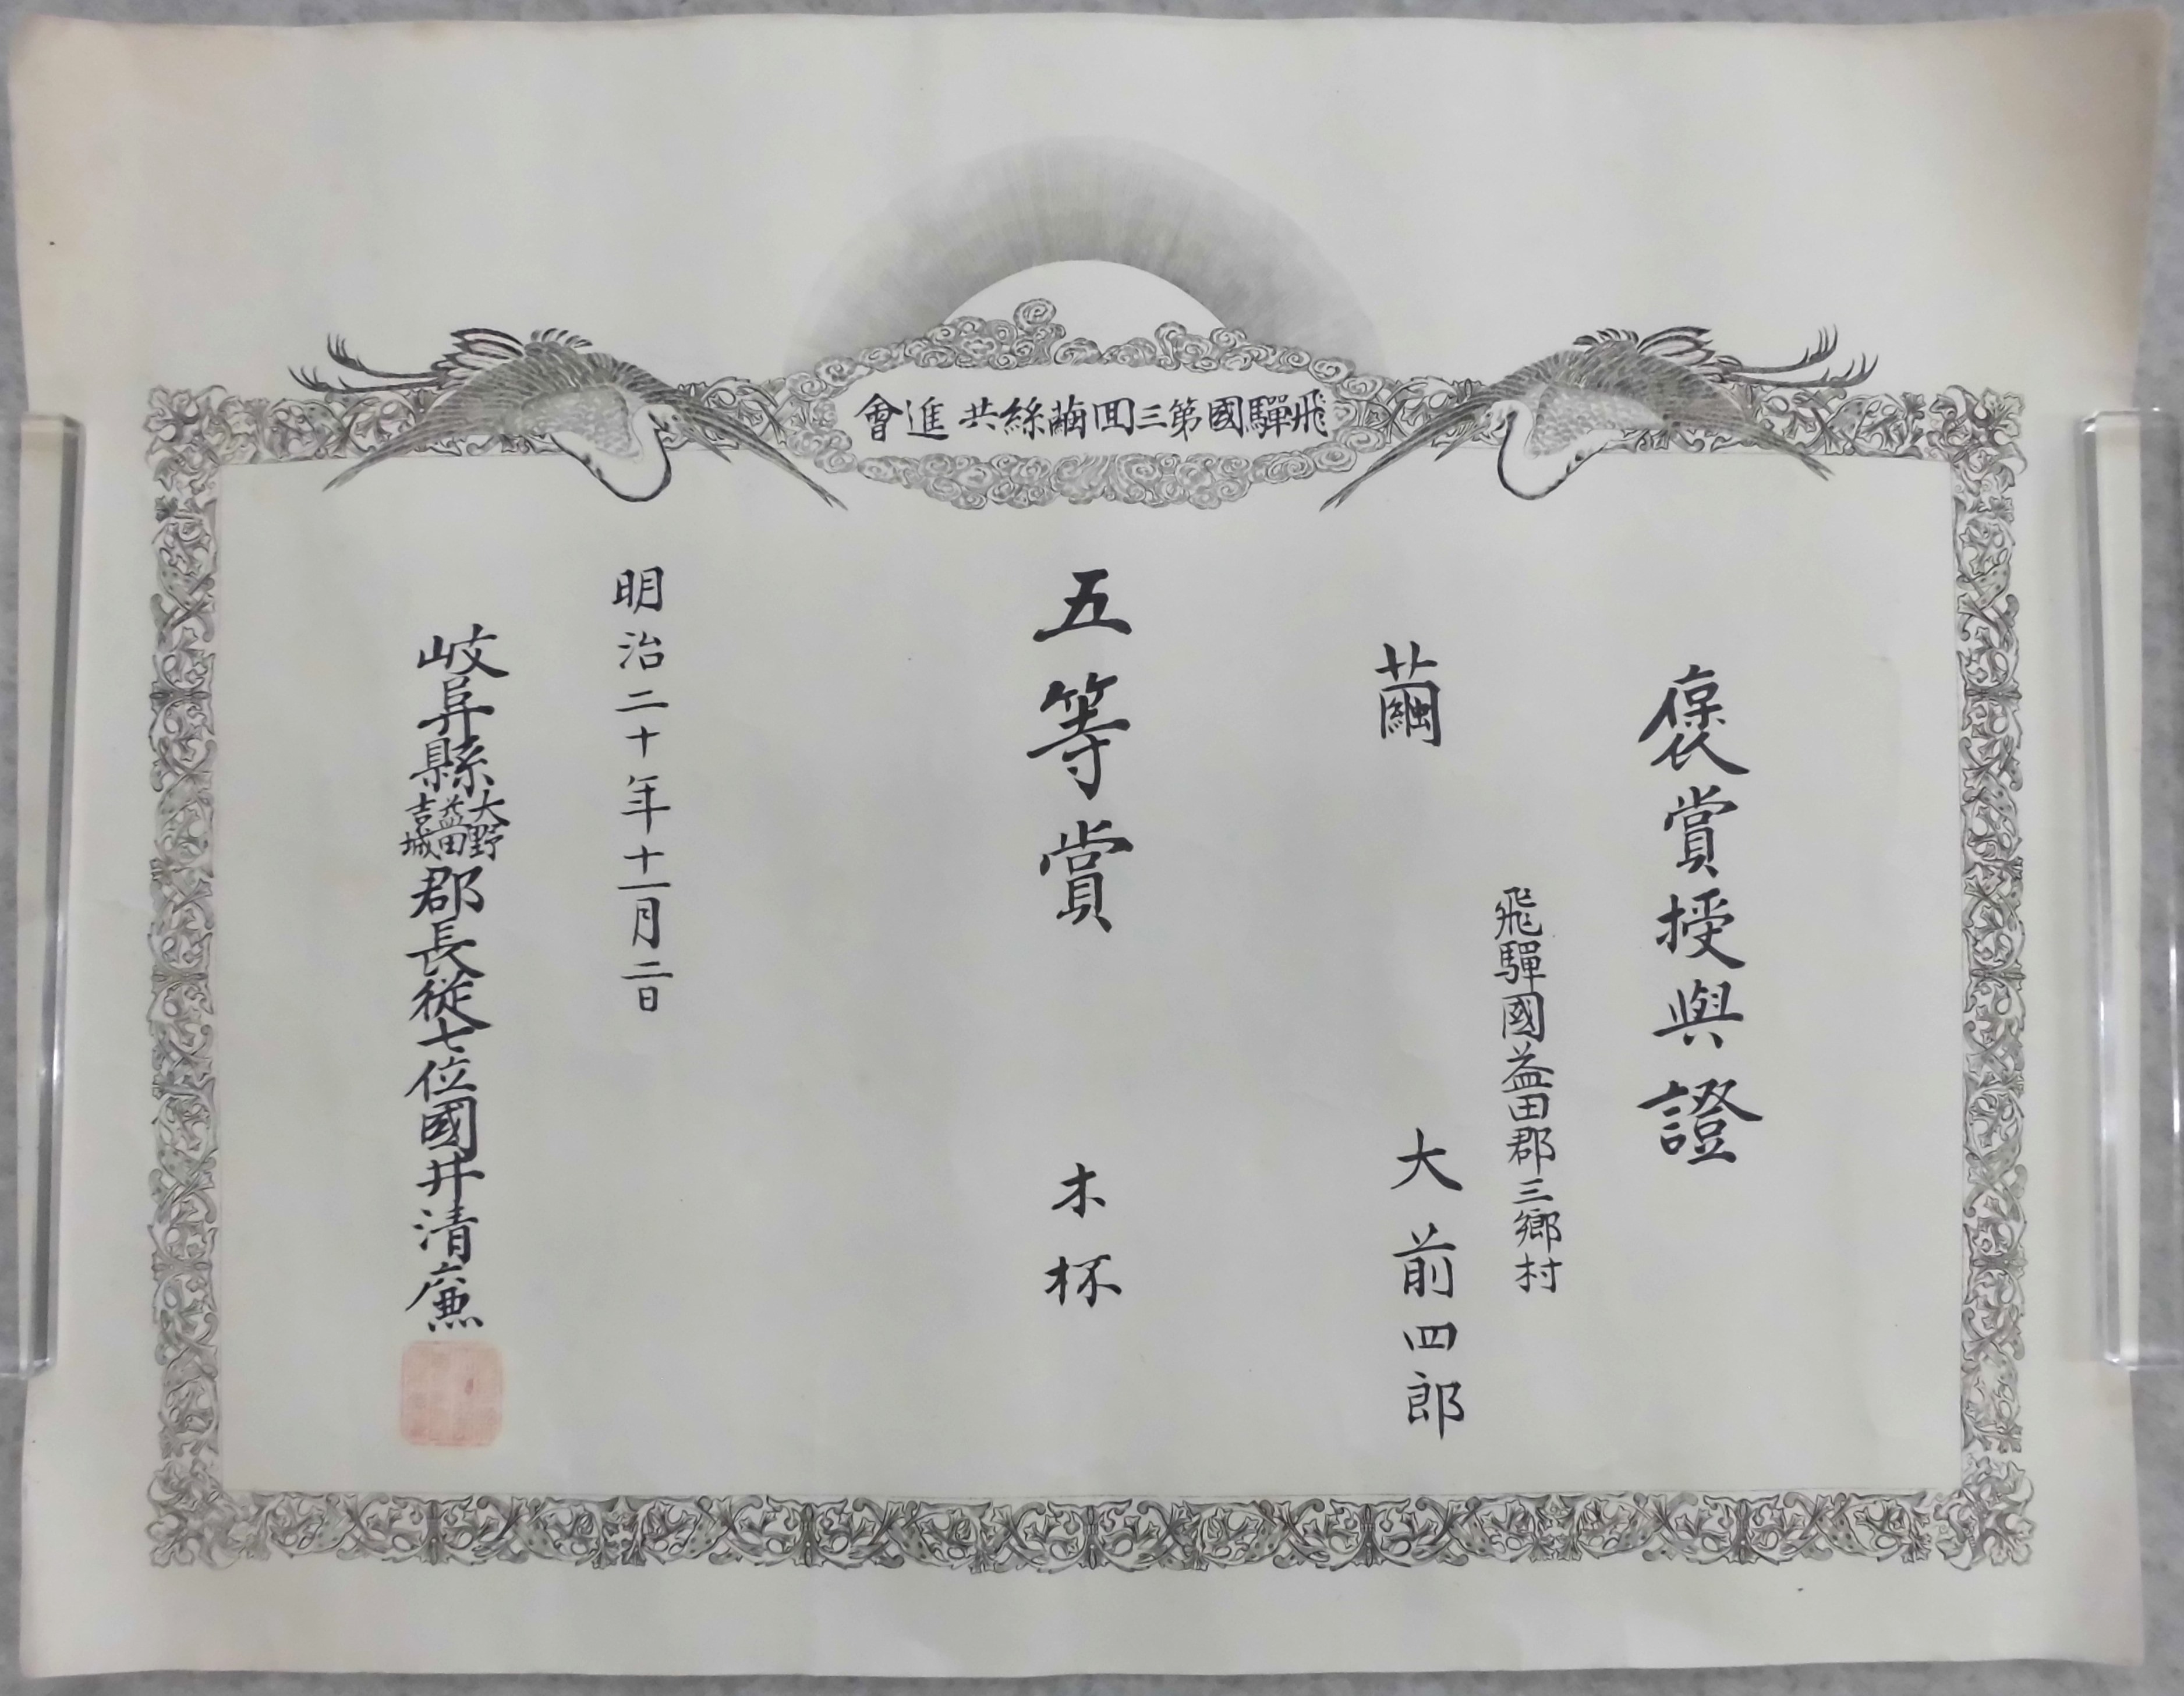 飛驒國第三回繭絲共進會
褒賞授與證
飛驒國益田郡三鄉村
繭 大前四郎
五等賞 木杯
明治二十年十一月二日
岐阜縣大野益田吉城郡長從七位國井清廉